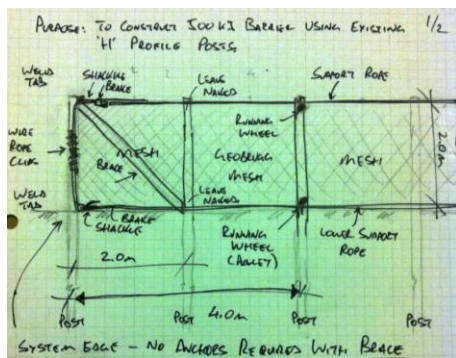 PURPOSE: TO CONSTRUCT 500KJ BARRIER USING EXISTING
'H' PROFILE POSTS
1/2
WELD
TAB
SHACKLE
BRAKE
LEAVE
NAKED
SUPPORT ROPE
WIRE
ROPE
CLIPS
RUNNING
WHEEL
MESH
BRACE
GEOBRUGG
MESH
MESH
2.0m
WELD
TAB
BRAKE
SHACKLE
LEAVE
NAKED
RUNNING
WHEEL
(PULLEY)
LOWER SUPPORT
ROPE
2.0m
4.0m
POST
POST
POST
POST
SYSTEM EDGE - NO ANCHORS REQUIRED WITH BRACE